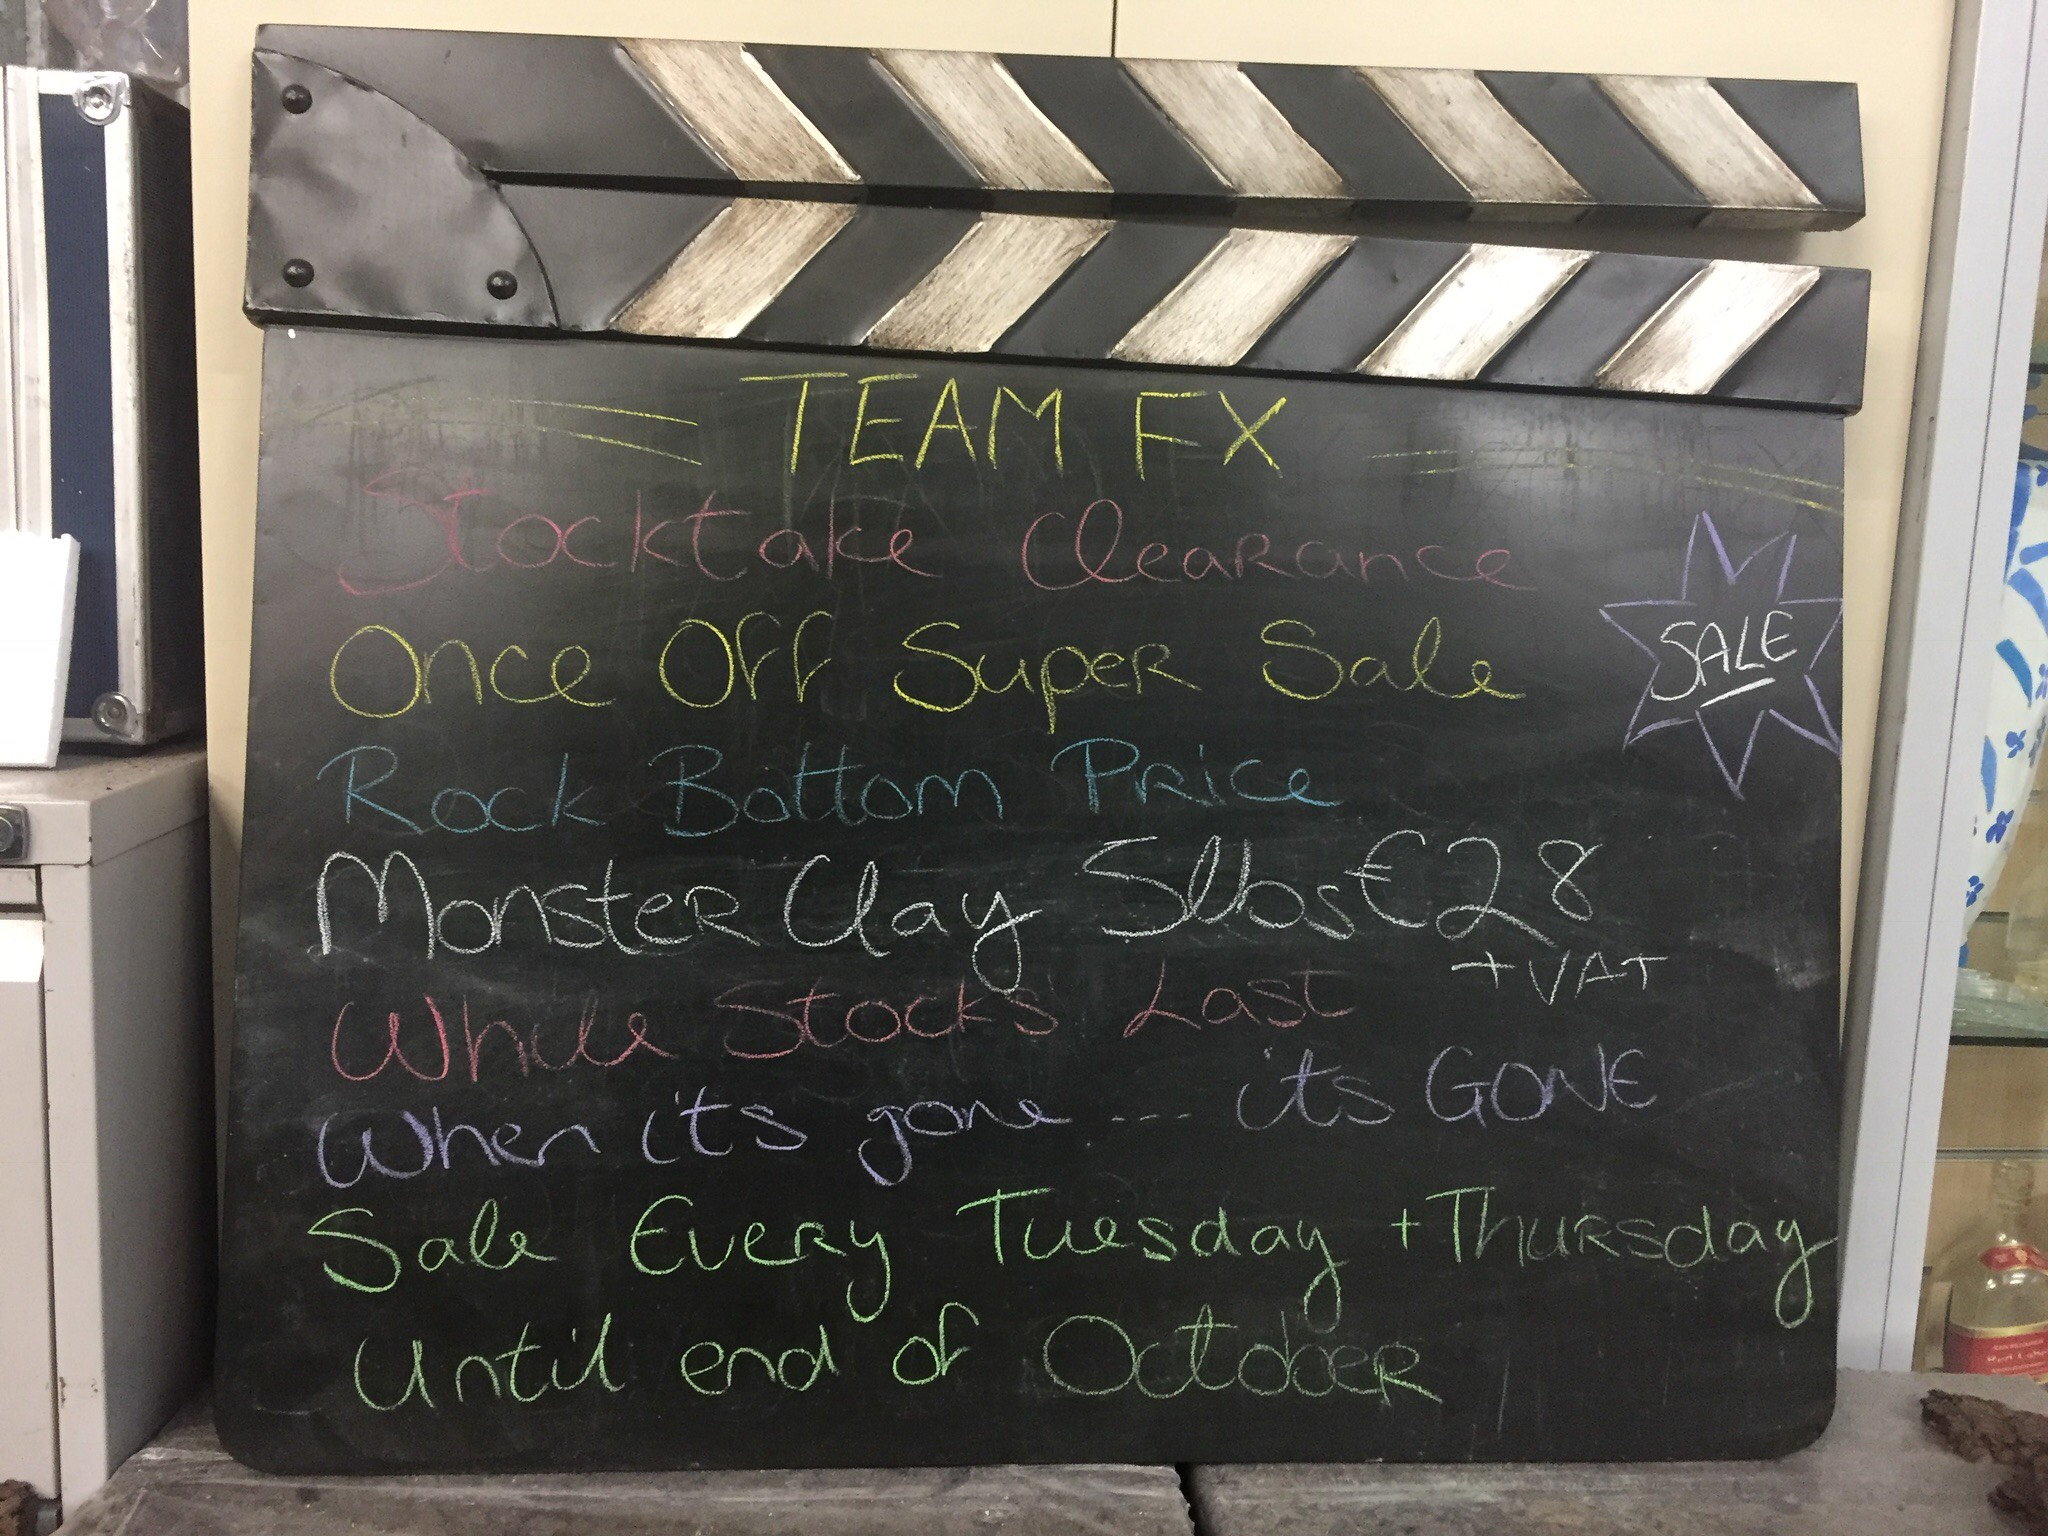 TEAM FX
Stocktake Clearance
Once Off Super Sale
SALE
Rock Bottom Price
Monster Clay 5lbs €28
+ VAT
While Stocks Last
When it's gone --- its GONE
Sale Every Tuesday + Thursday
Until end of October
Red Label